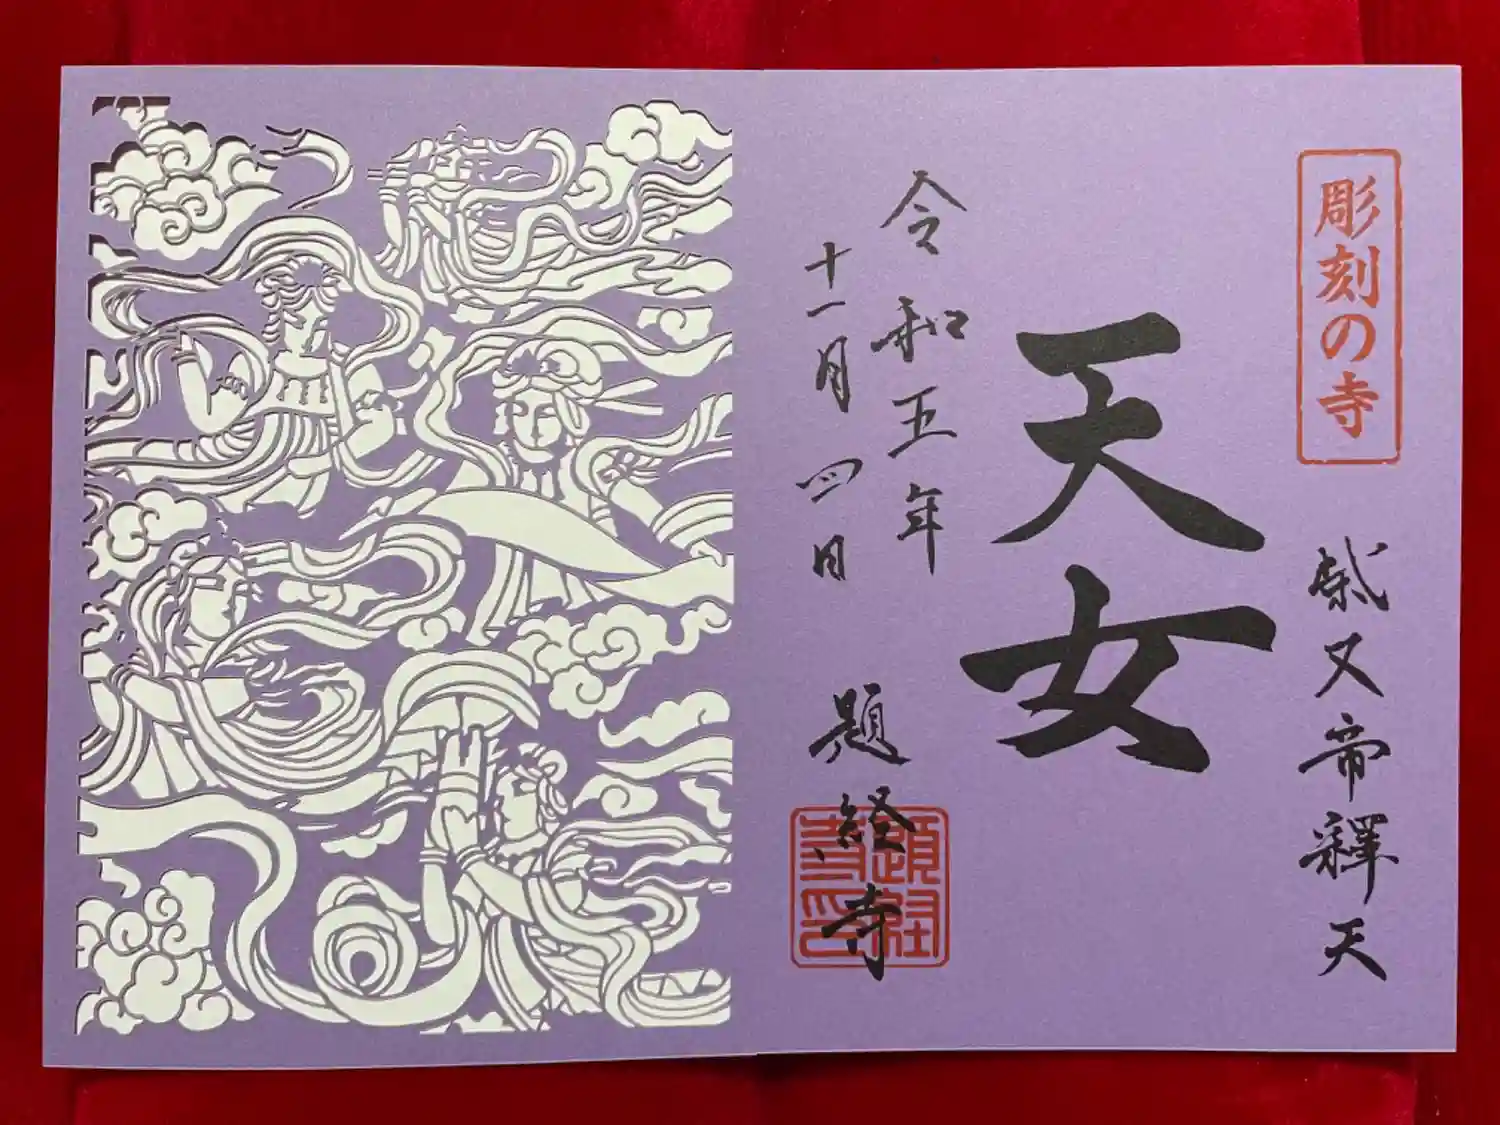 彫刻の寺
柴又帝釋天
天女
令和五年
十一月四日
題経寺